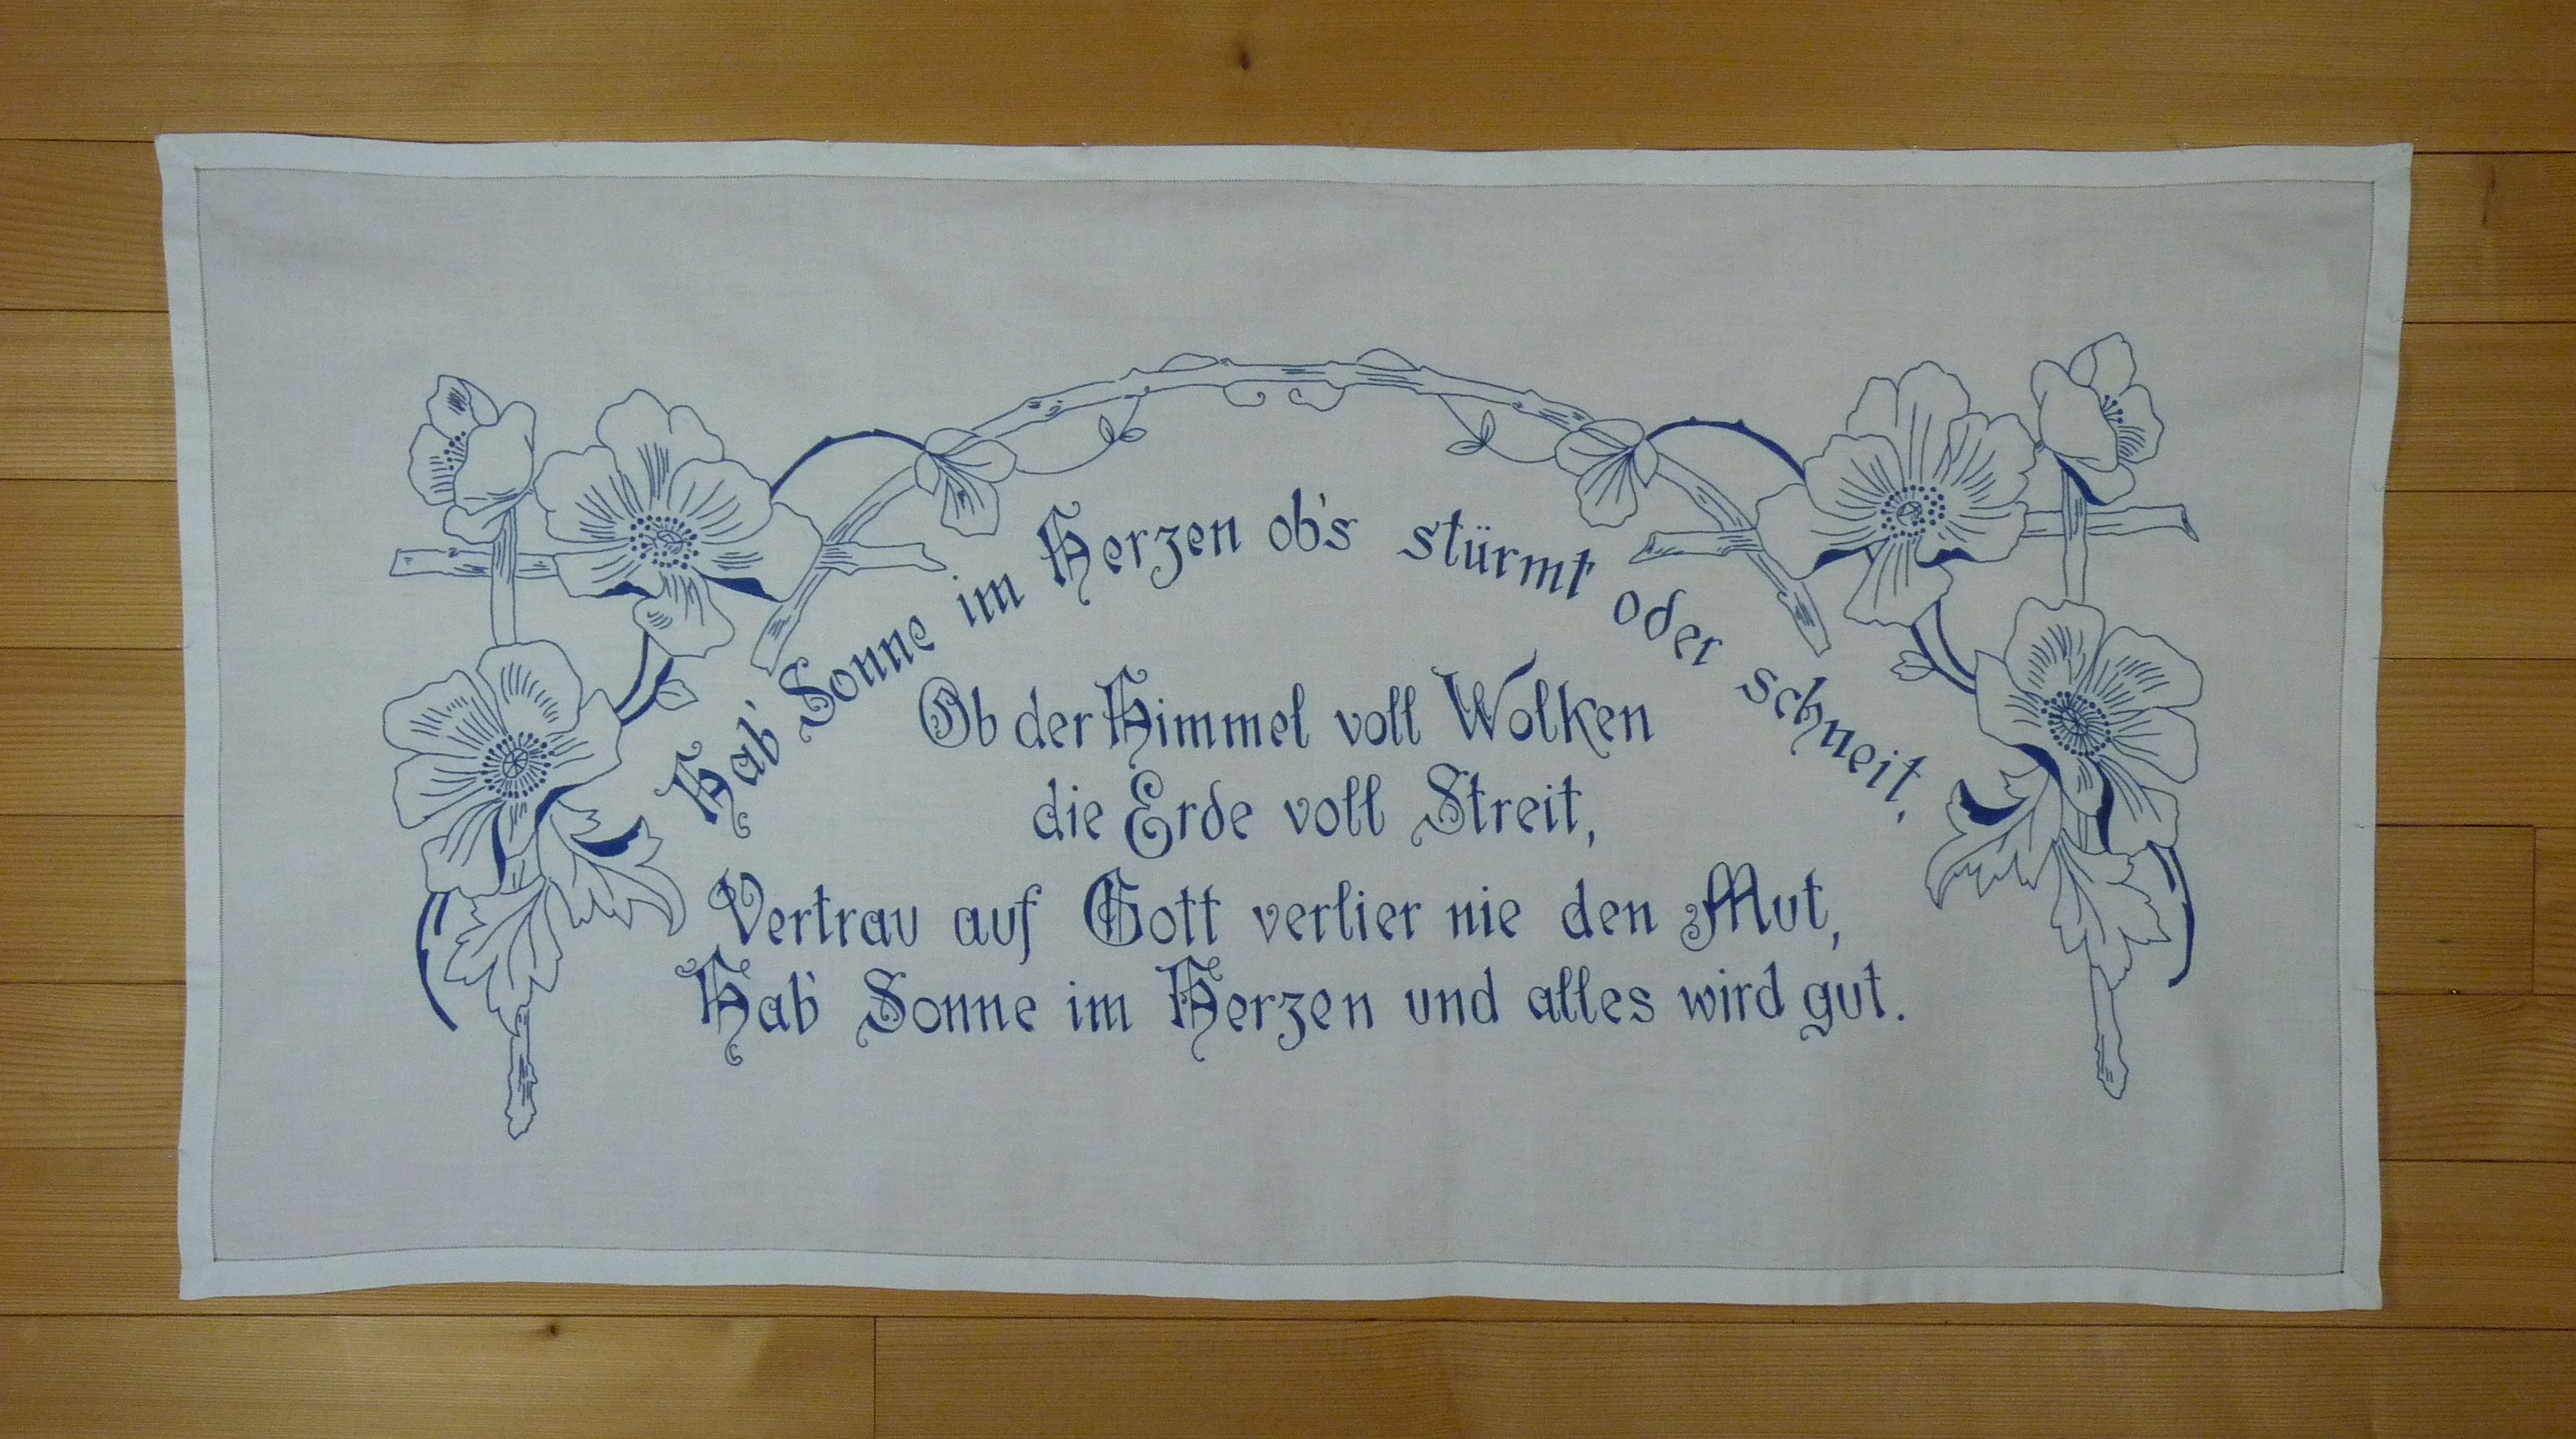 Hab' Sonne im Herzen ob's stürmt oder schneit,
Ob der Himmel voll Wolken
die Erde voll Streit,
Vertrau auf Gott verlier nie den Mut,
Hab' Sonne im Herzen und alles wird gut.